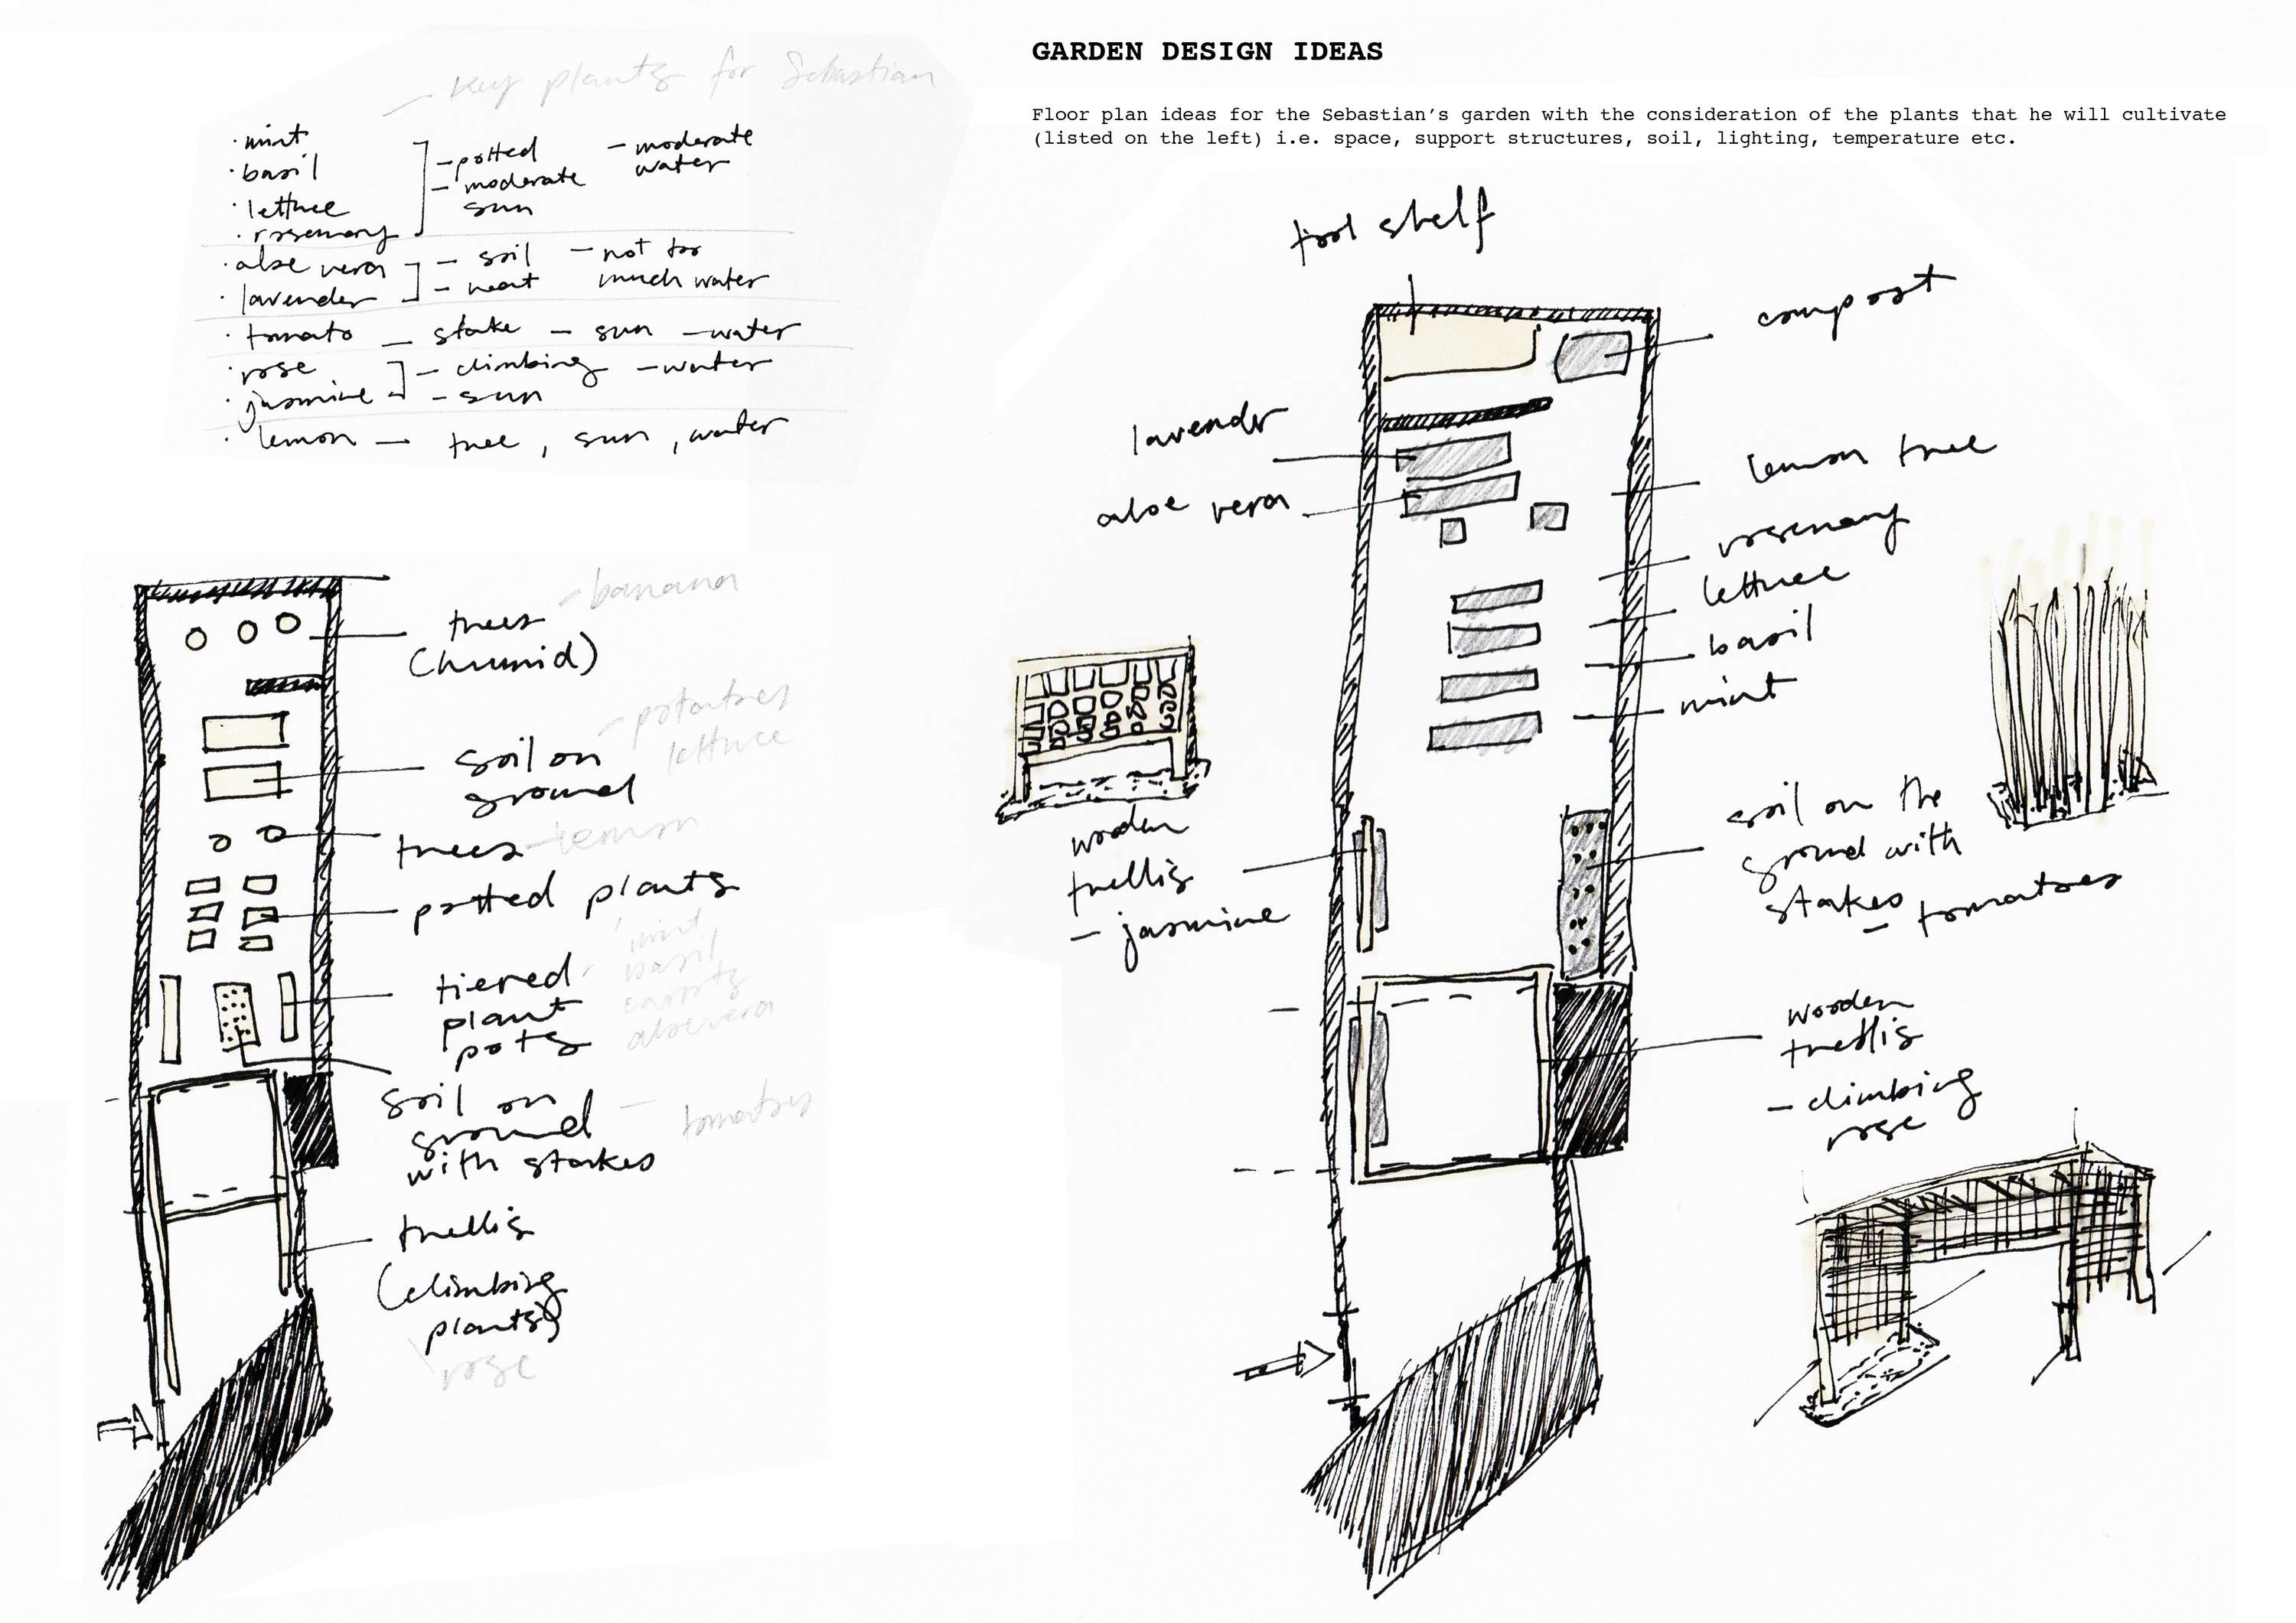 GARDEN DESIGN IDEAS
Floor plan ideas for the Sebastian's garden with the consideration of the plants that he will cultivate
(listed on the left) i.e. space, support structures, soil, lighting, temperature etc.
– Key plants for Sebastian
· mint
· basil
· lettuce
· rosemary
– potted
– moderate
sun
– moderate
water
· aloe vera
· lavender
– soil
– heat
– not too
much water
· tomato – stake – sun – water
· rose
· jasmine
– climbing – water
– sun
· lemon – tree, sun, water
trees
(humid)
– banana
soil on
ground
– potatoes
lettuce
trees – lemon
potted plants
tiered
plant
pots
mint
basil
carrots
aloe vera
soil on
ground
with stakes
– tomatoes
trellis
(climbing
plants)
rose
tool shelf
compost
lavender
aloe vera
lemon tree
rosemary
lettuce
basil
mint
wooden
trellis
– jasmine
soil on the
ground with
stakes
– tomatoes
wooden
trellis
– climbing
rose